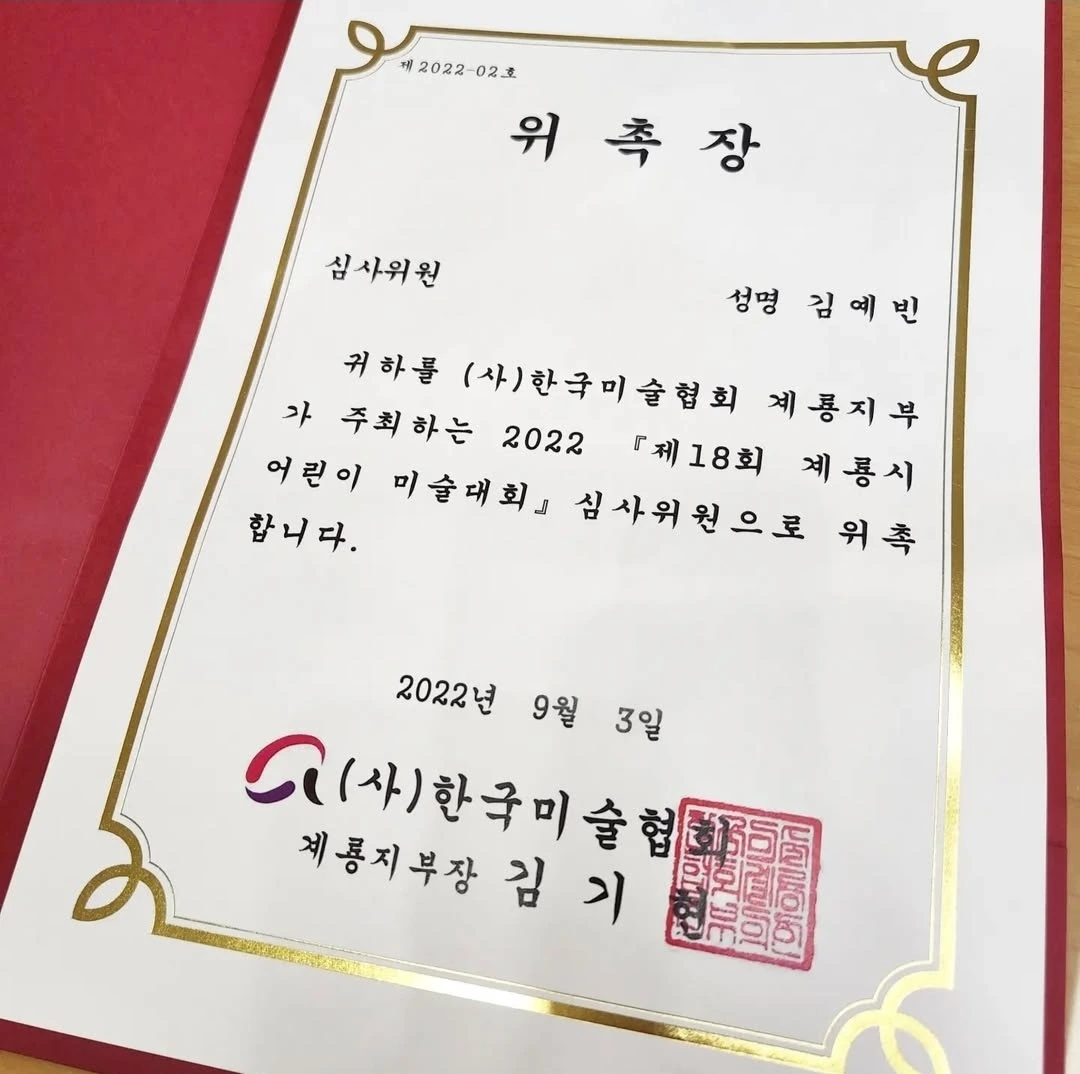 제 2022-02호
위 촉 장
심사위원
성명 김 예 빈
귀하를 (사)한국미술협회 계룡지부
가 주최하는 2022 『제18회 계룡시
어린이 미술대회』 심사위원으로 위촉
합니다.
2022년 9월 3일
(사)한국미술협회
계룡지부장 김 기 현